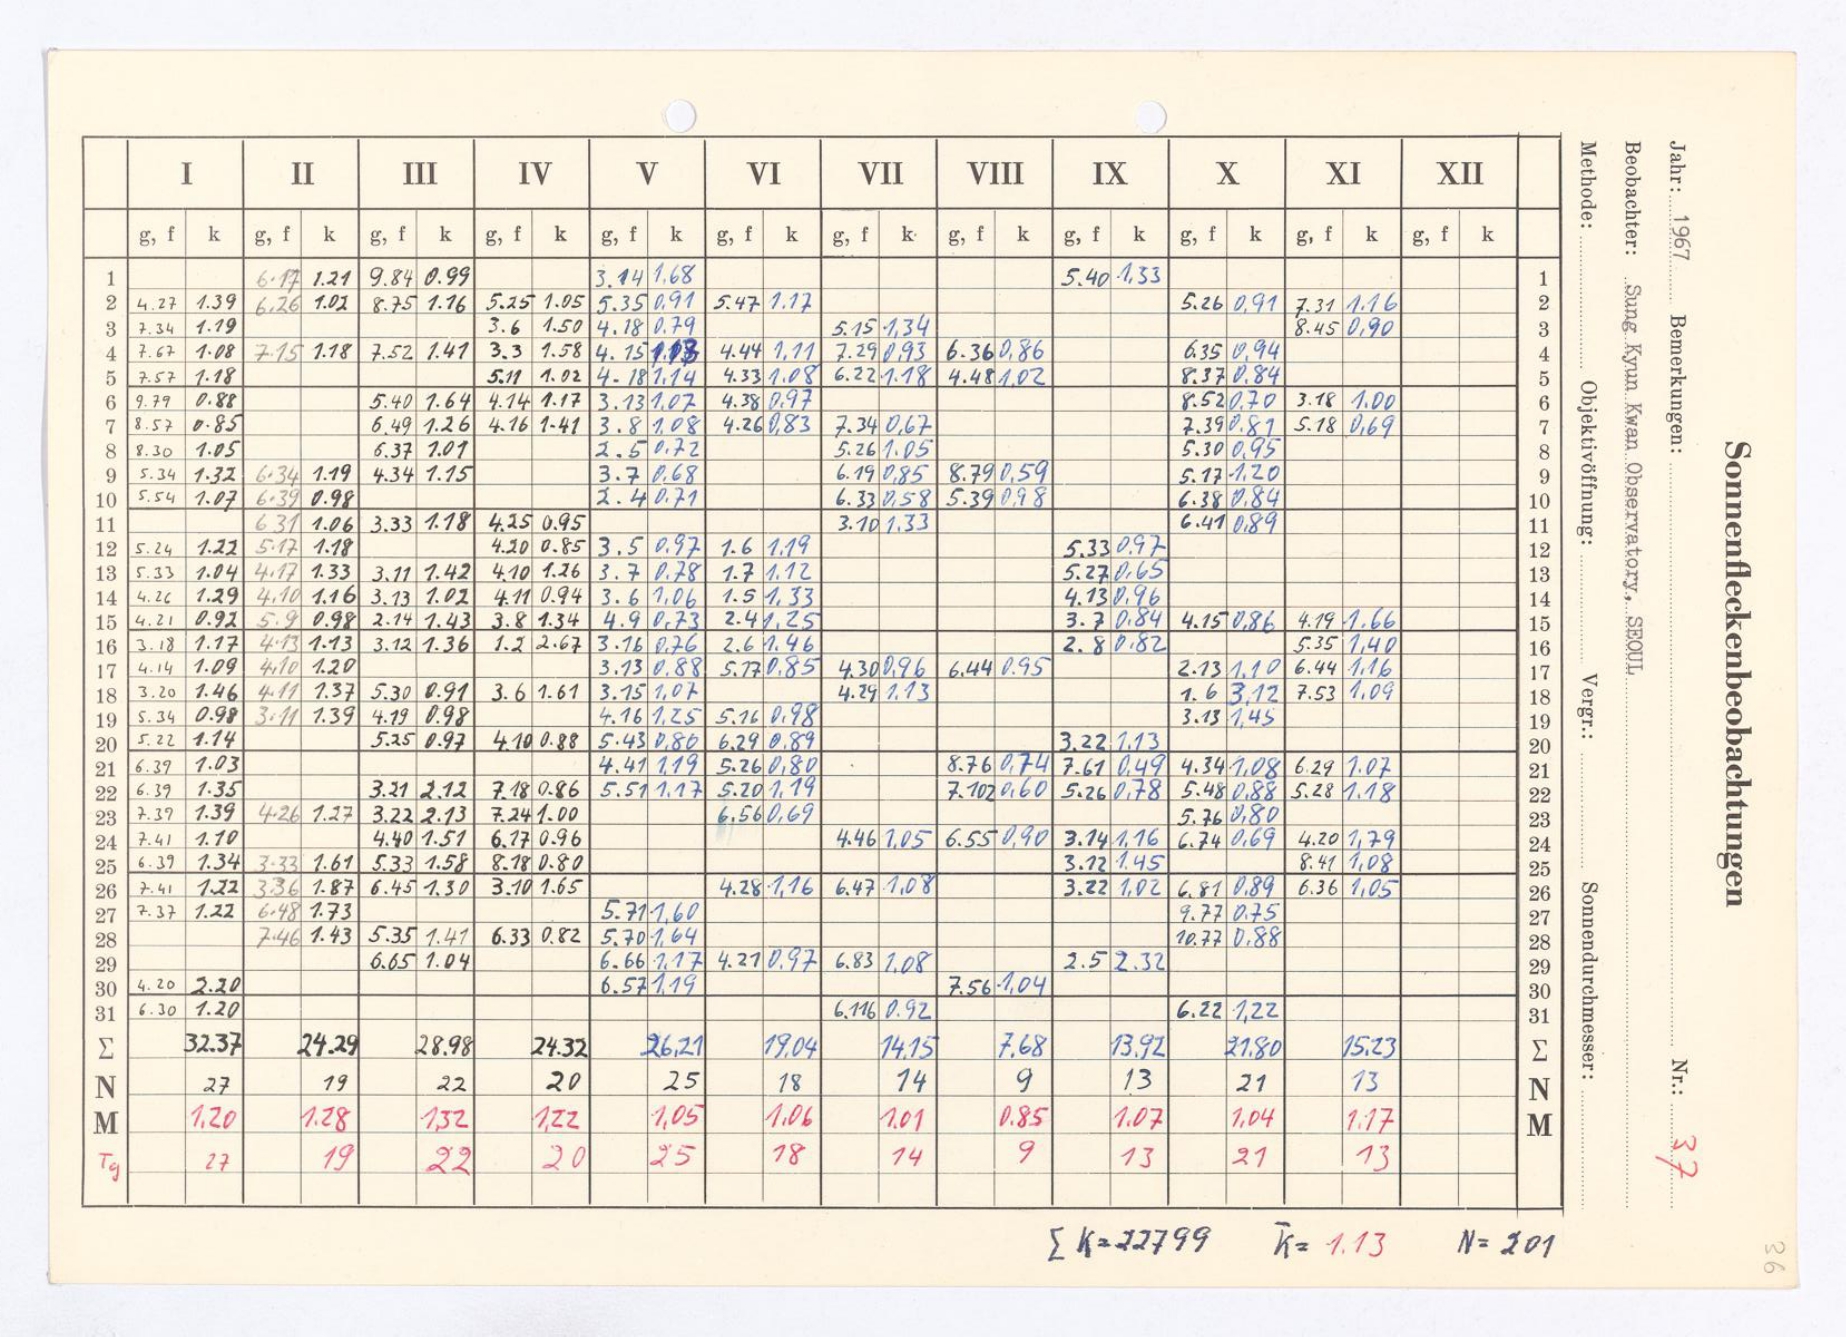 I II III IV V VI VII VIII IX X XI XII
g, f k g, f k g, f k g, f k g, f k g, f k g, f k g, f k g, f k g, f k g, f k g, f k
1 6.17 1.21 9.84 0.99 3.14 1.68 5.40 1,33 1
2 4.27 1.39 6.26 1.02 8.75 1.16 5.25 1.05 5.35 0.91 5.47 1.17 5.26 0,91 7.31 1.16 2
3 7.34 1.19 3.6 1.50 4.18 0.79 5.15 1,34 8.45 0,90 3
4 7.67 1.08 7.15 1.18 7.52 1.41 3.3 1.58 4.15 1.13 4.44 1,11 7.29 0,93 6.36 0,86 6.35 0,94 4
5 7.57 1.18 5.11 1.02 4.18 1.14 4.33 1.08 6.22 1.18 4.48 1,02 8.37 0,84 5
6 9.79 0.88 5.40 1.64 4.14 1.17 3.13 1,07 4.38 0,97 8.52 0,70 3.18 1.00 6
7 8.57 0.85 6.49 1.26 4.16 1.41 3.8 1,08 4.26 0,83 7.34 0,67 7.39 0.81 5.18 0,69 7
8 8.30 1.05 6.37 1.01 2.5 0.72 5.26 1.05 5.30 0,95 8
9 5.34 1.32 6.34 1.19 4.34 1.15 3.7 0,68 6.19 0,85 8.79 0,59 5.17 1.20 9
10 5.54 1.07 6.39 0.98 2.4 0.71 6.33 0,58 5.39 0,98 6.38 0,84 10
11 6 31 1.06 3.33 1.18 4.25 0.95 3.10 1,33 6.41 0,89 11
12 5.24 1.22 5.17 1.18 4.20 0.85 3.5 0,97 1.6 1,19 5.33 0.97 12
13 5.33 1.04 4.17 1.33 3.11 1.42 4.10 1.26 3.7 0,78 1.7 1.12 5.27 0,65 13
14 4.26 1.29 4.10 1.16 3.13 1.02 4.11 0.94 3.6 1,06 1.5 1,33 4.13 0,96 14
15 4.21 0.92 5.9 0.98 2.14 1.43 3.8 1.34 4.9 0,73 2.4 1,25 3.7 0,84 4.15 0,86 4.19 1.66 15
16 3.18 1.17 4.13 1.13 3.12 1.36 1.2 2.67 3.16 0,76 2.6 1.46 2.8 0.82 5.35 1,40 16
17 4.14 1.09 4.10 1.20 3.13 0.88 5.17 0.85 4.30 0,96 6.44 0.95 2.13 1,10 6.44 1,16 17
18 3.20 1.46 4.11 1.37 5.30 0.91 3.6 1.61 3.15 1,07 4.29 1.13 1.6 3,12 7.53 1,09 18
19 5.34 0.98 3.11 1.39 4.19 0.98 4.16 1,25 5.16 0,98 3.13 1,45 19
20 5.22 1.14 5.25 0.97 4.10 0.88 5.43 0,80 6.29 0,89 3.22 1,13 20
21 6.39 1.03 4.41 1,19 5.26 0,80 8.76 0,74 7.61 0,49 4.34 1,08 6.29 1.07 21
22 6.39 1.35 3.21 2.12 7.18 0.86 5.51 1,17 5.20 1,19 7.102 0,60 5.26 0,78 5.48 0,88 5.28 1.18 22
23 7.39 1.39 4.26 1.27 3.22 2.13 7.24 1.00 6.56 0,69 5.76 0,80 23
24 7.41 1.10 4.40 1.51 6.17 0.96 4.46 1,05 6.55 0,90 3.14 1,16 6.74 0,69 4.20 1,79 24
25 6.39 1.34 3.33 1.61 5.33 1.58 8.18 0.80 3.12 1.45 8.41 1,08 25
26 7.41 1.22 3.36 1.87 6.45 1.30 3.10 1.65 4.28 1,16 6.47 1,08 3.22 1,02 6.81 0,89 6.36 1,05 26
27 7.37 1.22 6.48 1.73 5.71 1,60 9.77 0.75 27
28 7.46 1.43 5.35 1.41 6.33 0.82 5.70 1,64 10.77 0,88 28
29 6.65 1.04 6.66 1,17 4.21 0,97 6.83 1,08 2.5 2.32 29
30 4.20 2.20 6.57 1,19 7.56 1,04 30
31 6.30 1.20 6.116 0.92 6.22 1,22 31
Σ 32.37 24.29 28.98 24.32 26,21 19,04 14,15 7,68 13,92 21.80 15.23 Σ
N 27 19 22 20 25 18 14 9 13 21 13 N
M 1,20 1.28 1,32 1,22 1,05 1,06 1.01 0.85 1.07 1,04 1.17 M
Tg 27 19 22 20 25 18 14 9 13 21 13
Σ K = 22799 k̄ = 1.13 N = 201
Sonnenfleckenbeobachtungen
Jahr: 1967 Bemerkungen: Nr.: 37
Beobachter: Sung Kyun Kwan Observatory, SEOUL
Methode: Objektivöffnung: Vergr.: Sonnendurchmesser:
36